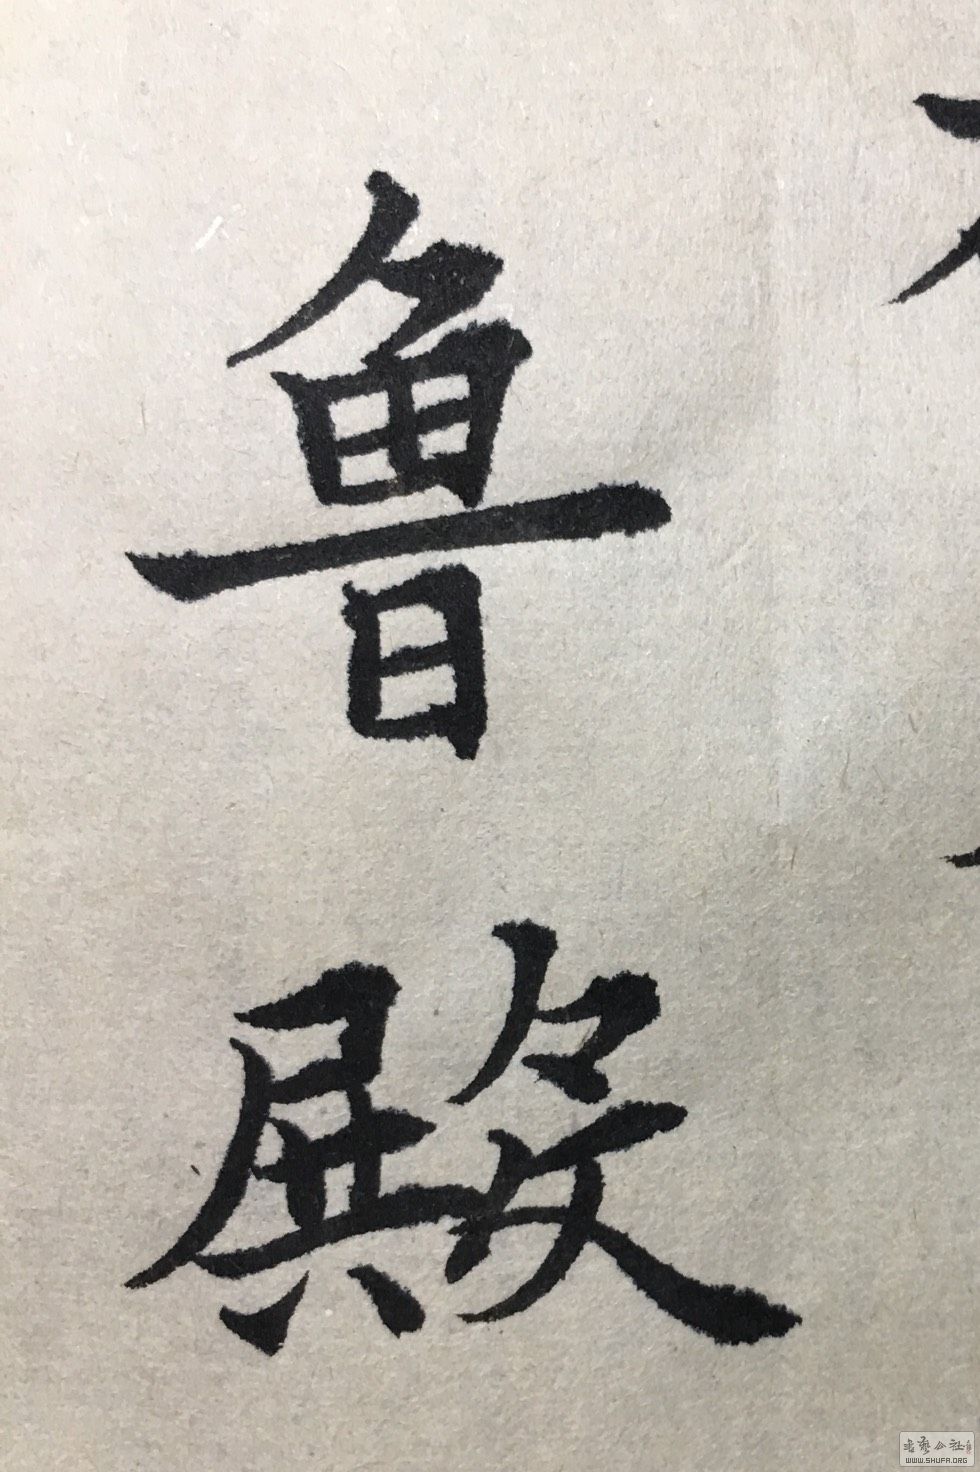 魯殿
書藝公社
WWW.SHUFA.ORG